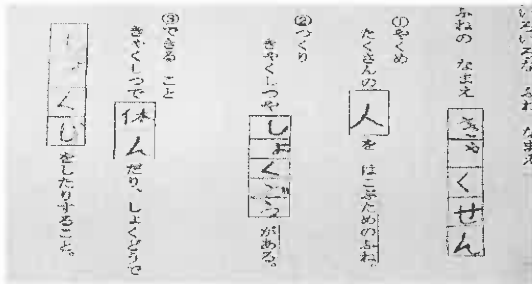 いろいろな ふね なまえ
ふねの なまえ きゃくせん
①やくめ
たくさんの 人 を はこぶためのふね。
②つくり
きゃくしつや しょくどう がある。
③できる こと
きゃくしつで 休ん だり、しょくどうで
しょくじ をしたりすること。